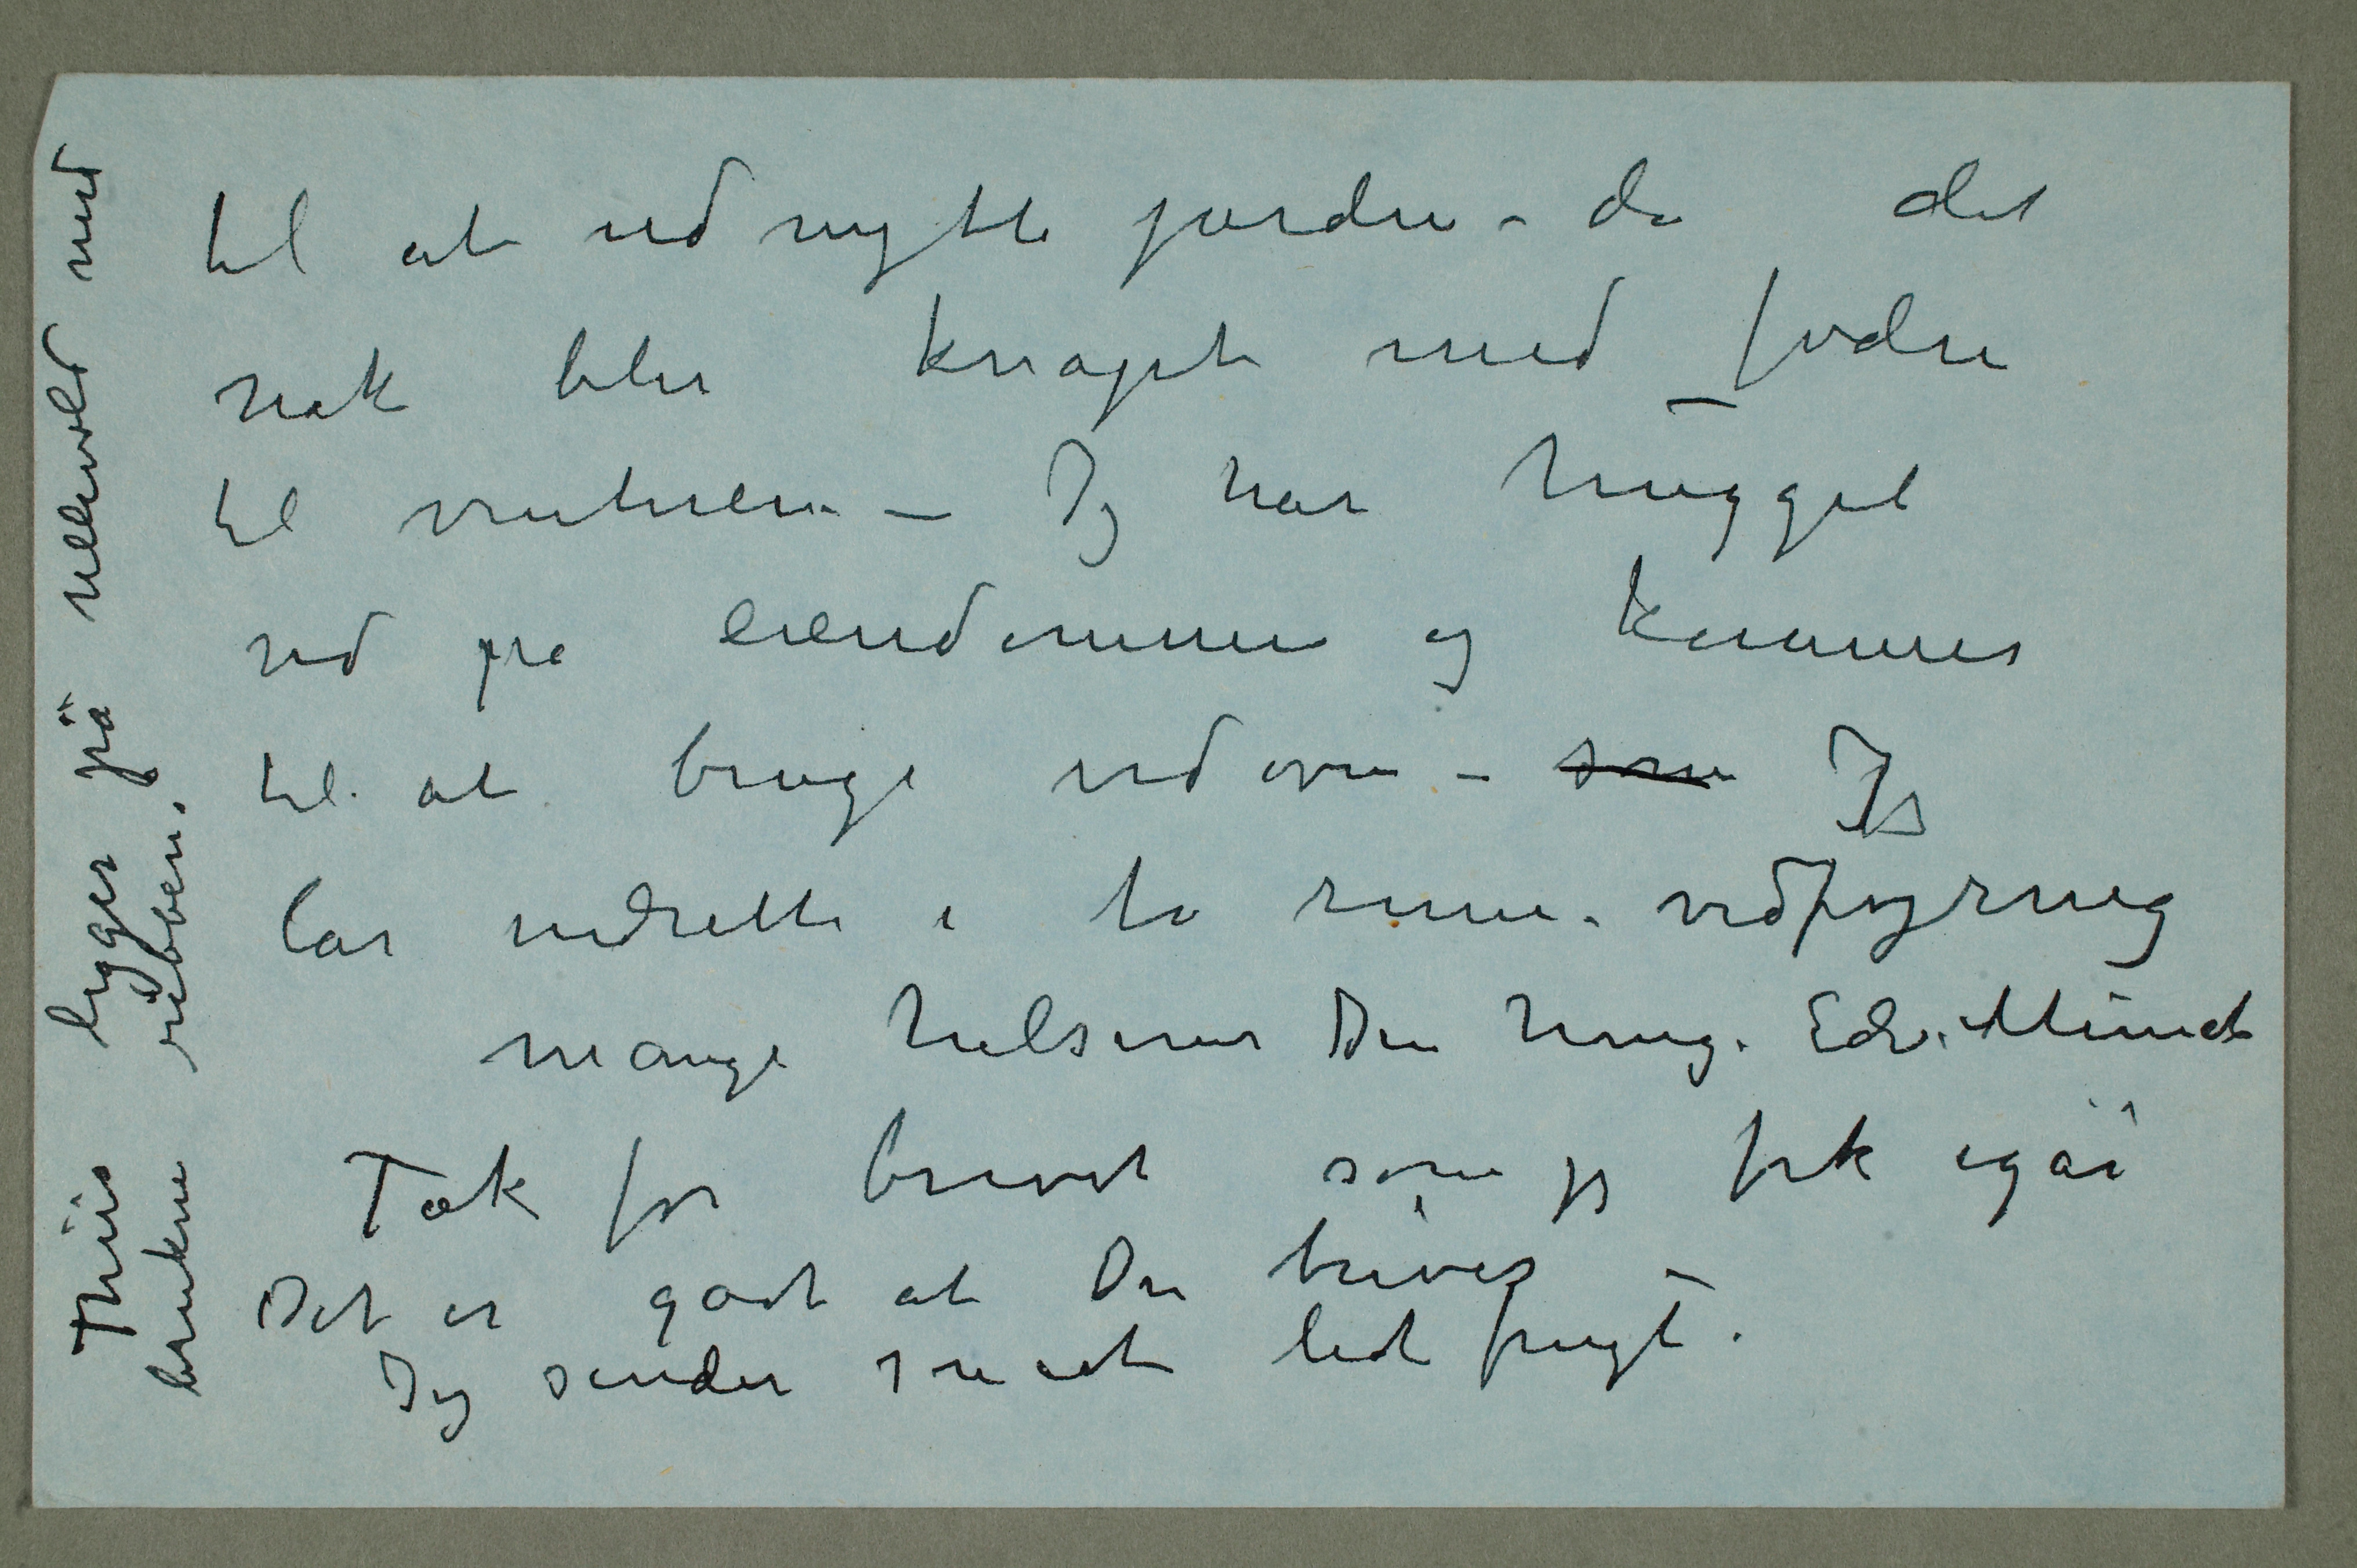 til at udnytte jorden – da det
nok blir knapt med føden
til vinteren. – Jeg har hugget
ved på eiendommen og kommer
til at bruge vedovn – som Jeg
lar indrette i to rum. vedfyrring
mange hilsener Din heng. Edv. Munch
Tak for brevet som jeg fik igår
Det er godt at Du trives –
Jeg sender snart lidt frugt.
Thiis ligger på Ullevold med
brukne ribben.